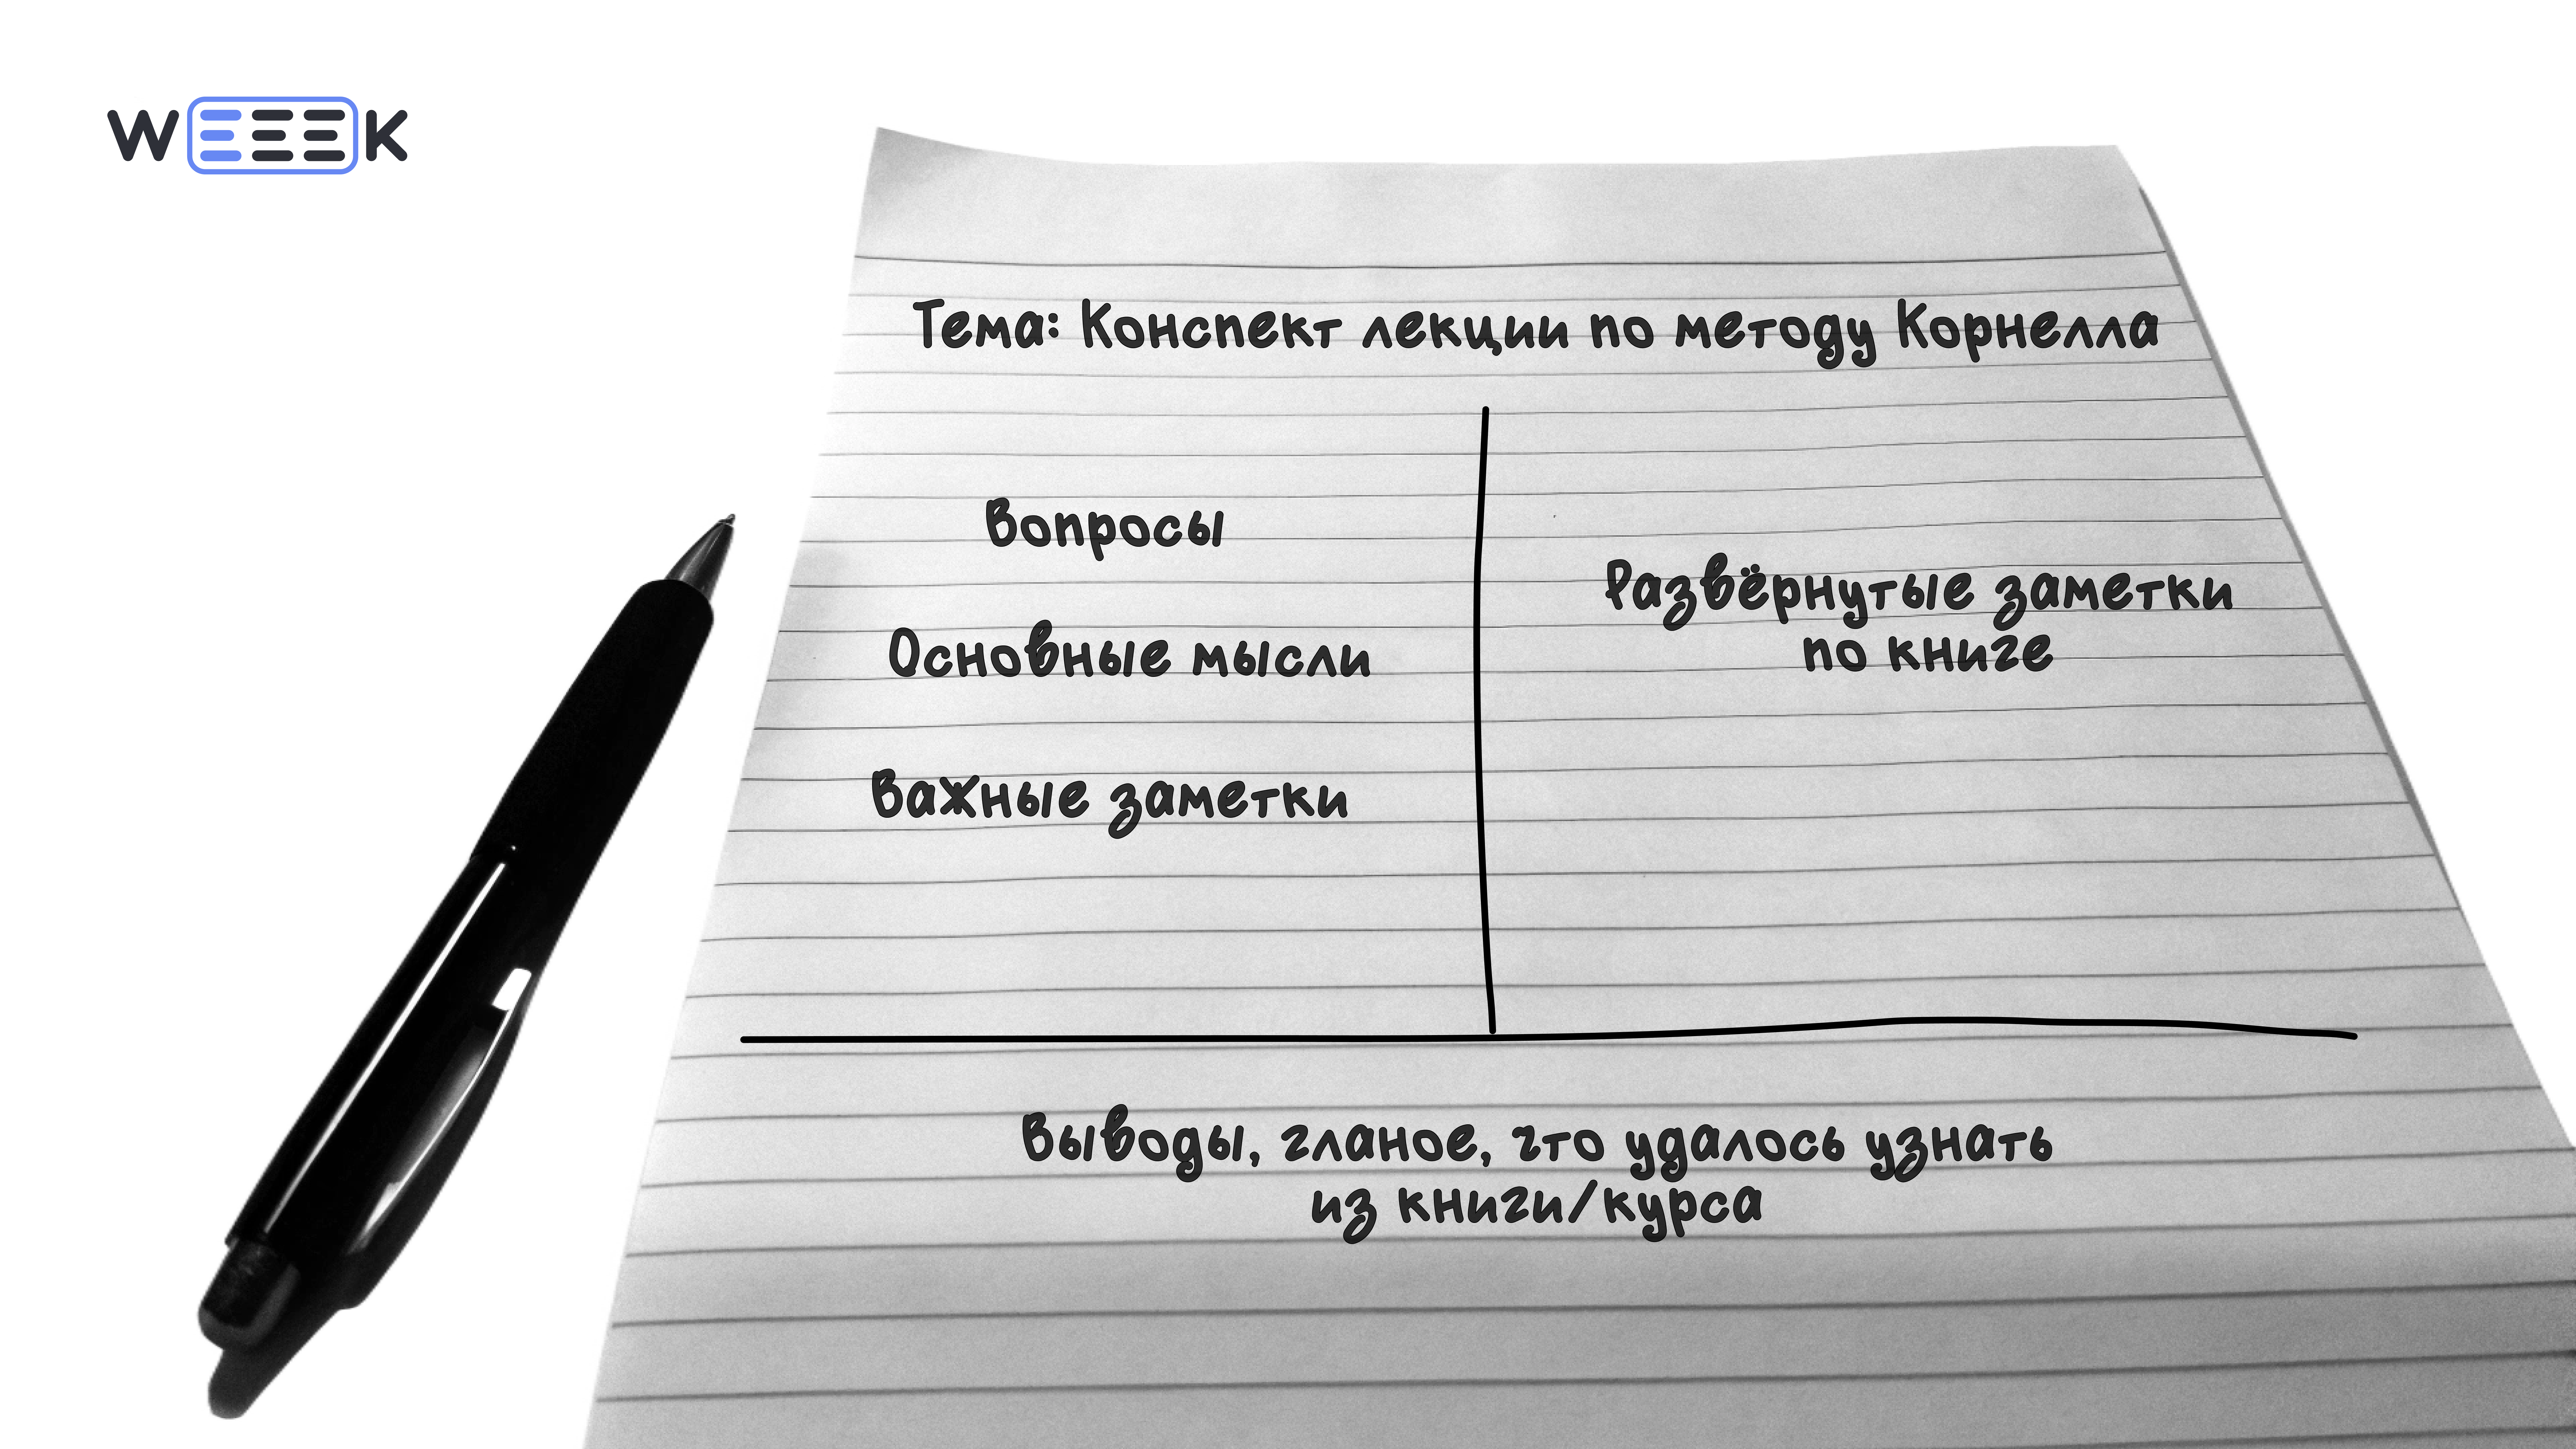 WEEEK
Тема: Конспект лекции по методу Корнелла
Вопросы
Основные мысли
Важные заметки
Развёрнутые заметки
по книге
Выводы, гланое, что удалось узнать
из книги/курса